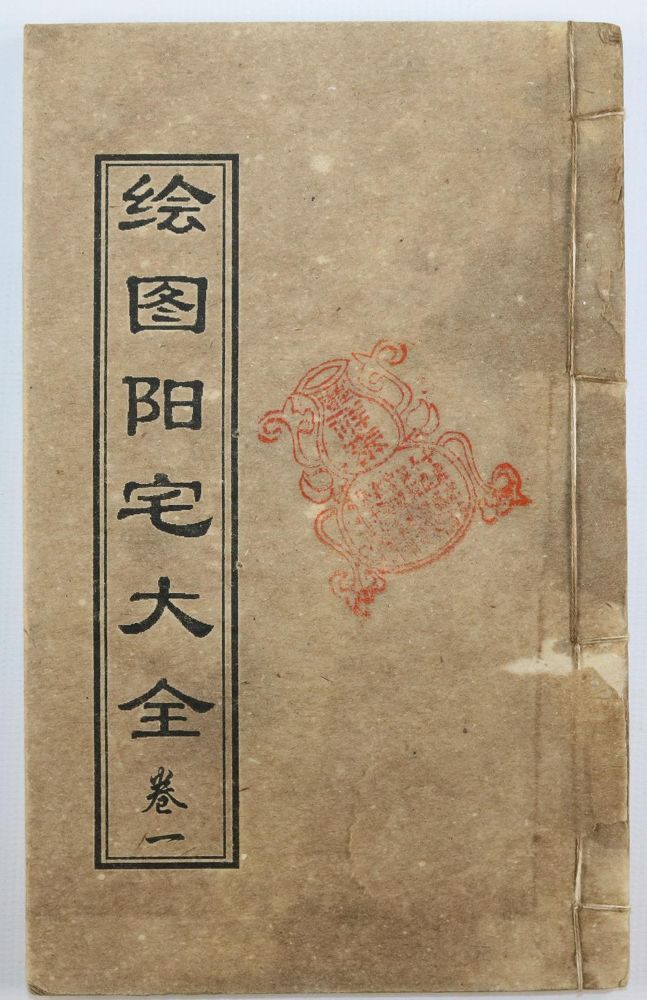 绘图阳宅大全 卷一